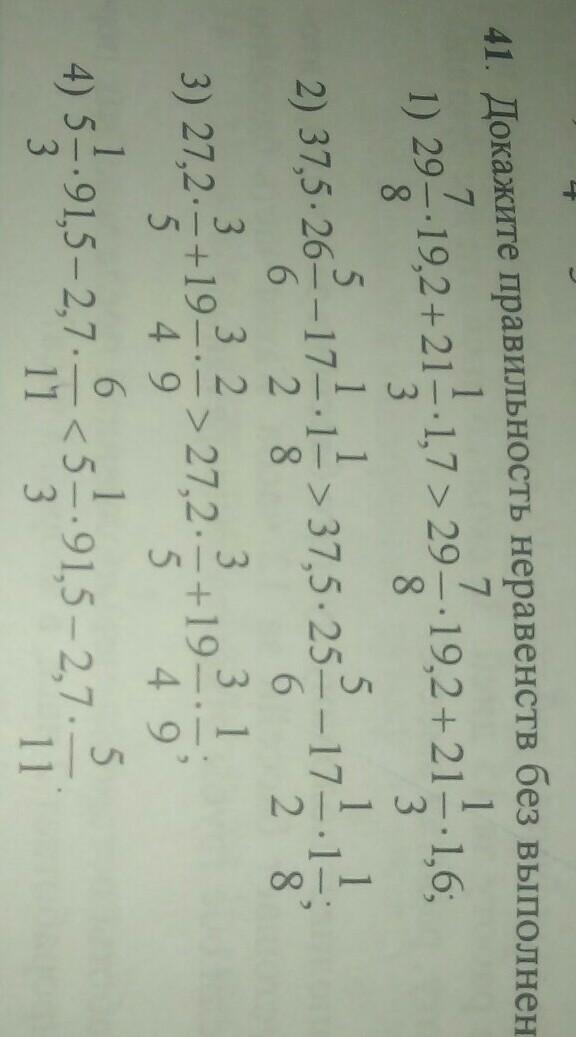 41. Докажите правильность неравенств без выполнен
1) 29 7/8 · 19,2 + 21 1/3 · 1,7 > 29 7/8 · 19,2 + 21 1/3 · 1,6;
2) 37,5 · 26 5/6 − 17 1/2 · 1 1/8 > 37,5 · 25 5/6 − 17 1/2 · 1 1/8;
3) 27,2 · 3/5 + 19 3/4 · 2/9 > 27,2 · 3/5 + 19 3/4 · 1/9;
4) 5 1/3 · 91,5 − 2,7 · 6/11 < 5 1/3 · 91,5 − 2,7 · 5/11.